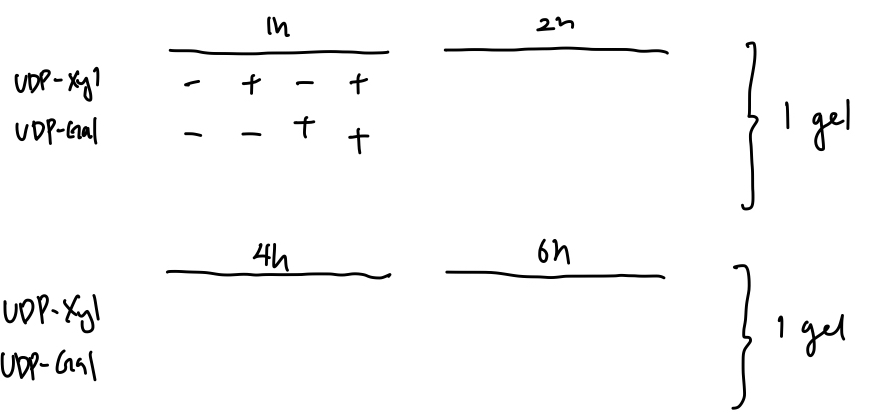 1h 2h
UDP-Xyl - + - +
UDP-Gal - - + +
1 gel
4h 6h
UDP-Xyl
UDP-Gal
1 gel